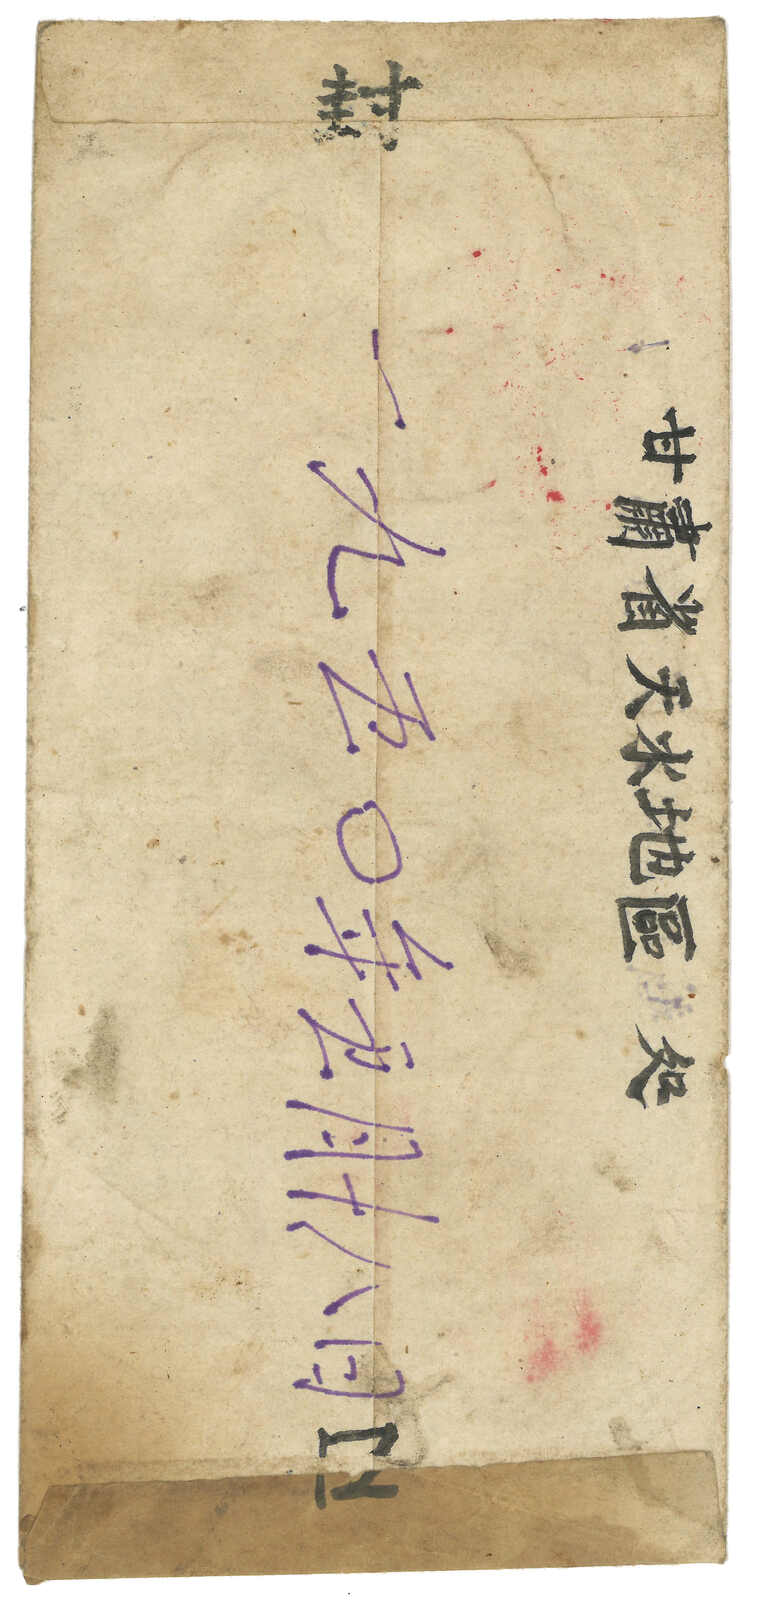 封
甘肅省天水地區 处
一九五〇年五月十八日